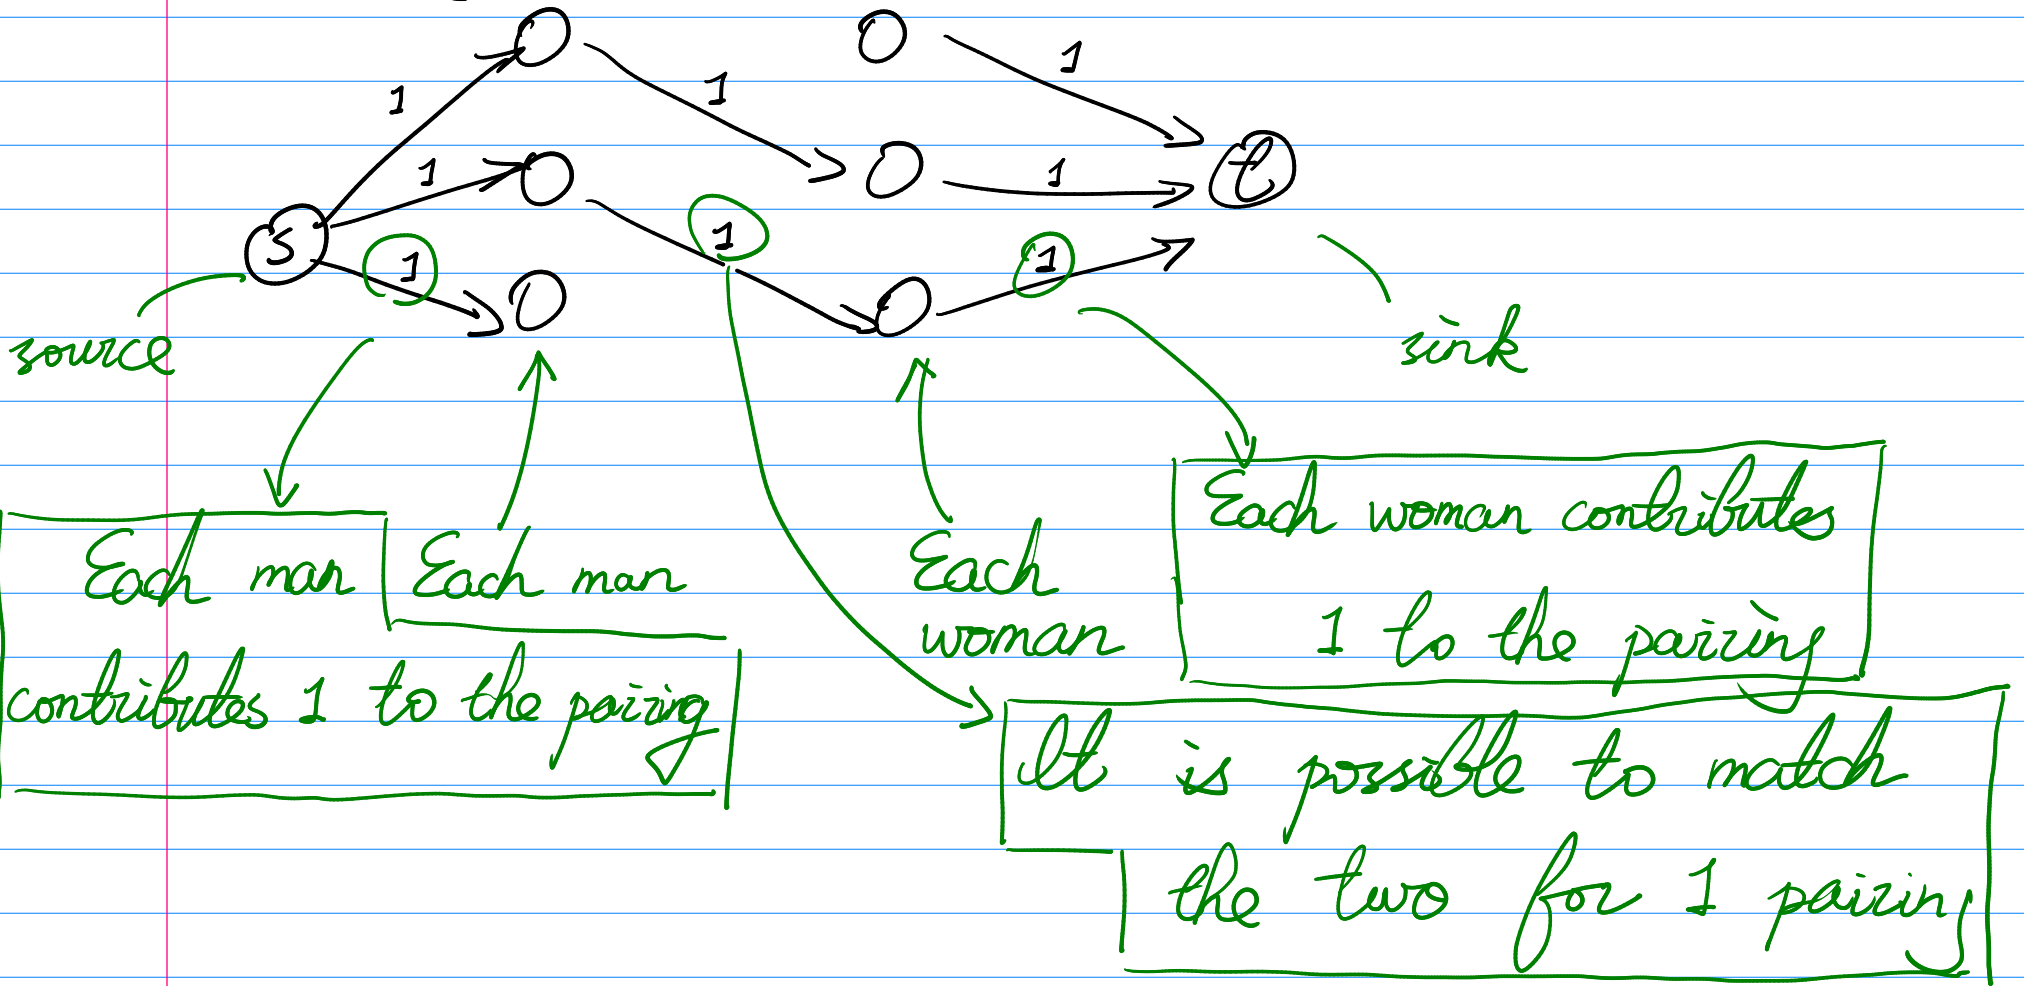 1
1
1
1
1
s
1
1
1
t
source
sink
Each man
contributes 1 to the pairing
Each man
Each
woman
Each woman contributes
1 to the pairing
It is possible to match
the two for 1 pairing